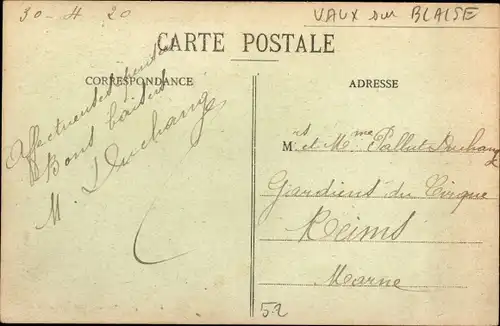 30-4 20
VAUX sur BLAISE
CARTE POSTALE
CORRESPONDANCE
ADRESSE
Affectueuses pensées
Bons baisers
M. Duchange
Mrs et Mme Pallut Duchange
Gardiens du Cirque
Reims
Marne
52